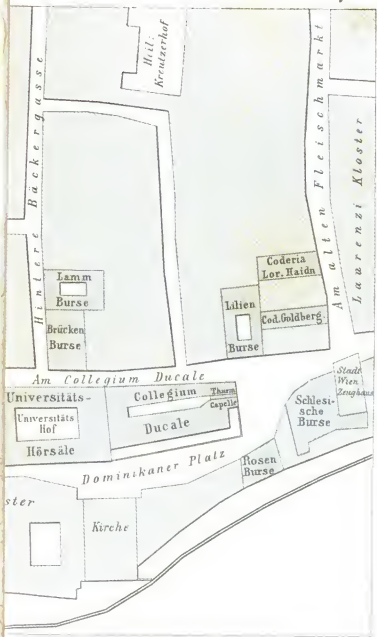 Heil.
Kreutzerhof
Hintere Bäckergasse
Am alten Fleischmarkt
Laurenzi Kloster
Lamm
Burse
Brücken
Burse
Coderia
Lor. Haidn.
Lilien
Burse
Cod. Goldberg.
Am Collegium Ducale
Universitäts-
Universitäts
Hof
Hörsäle
Collegium
Ducale
Thurm
Capelle
Stadt
Wien
Zeughaus
Schlesi-
sche
Burse
Dominikaner Platz
Rosen
Burse
ster
Kirche